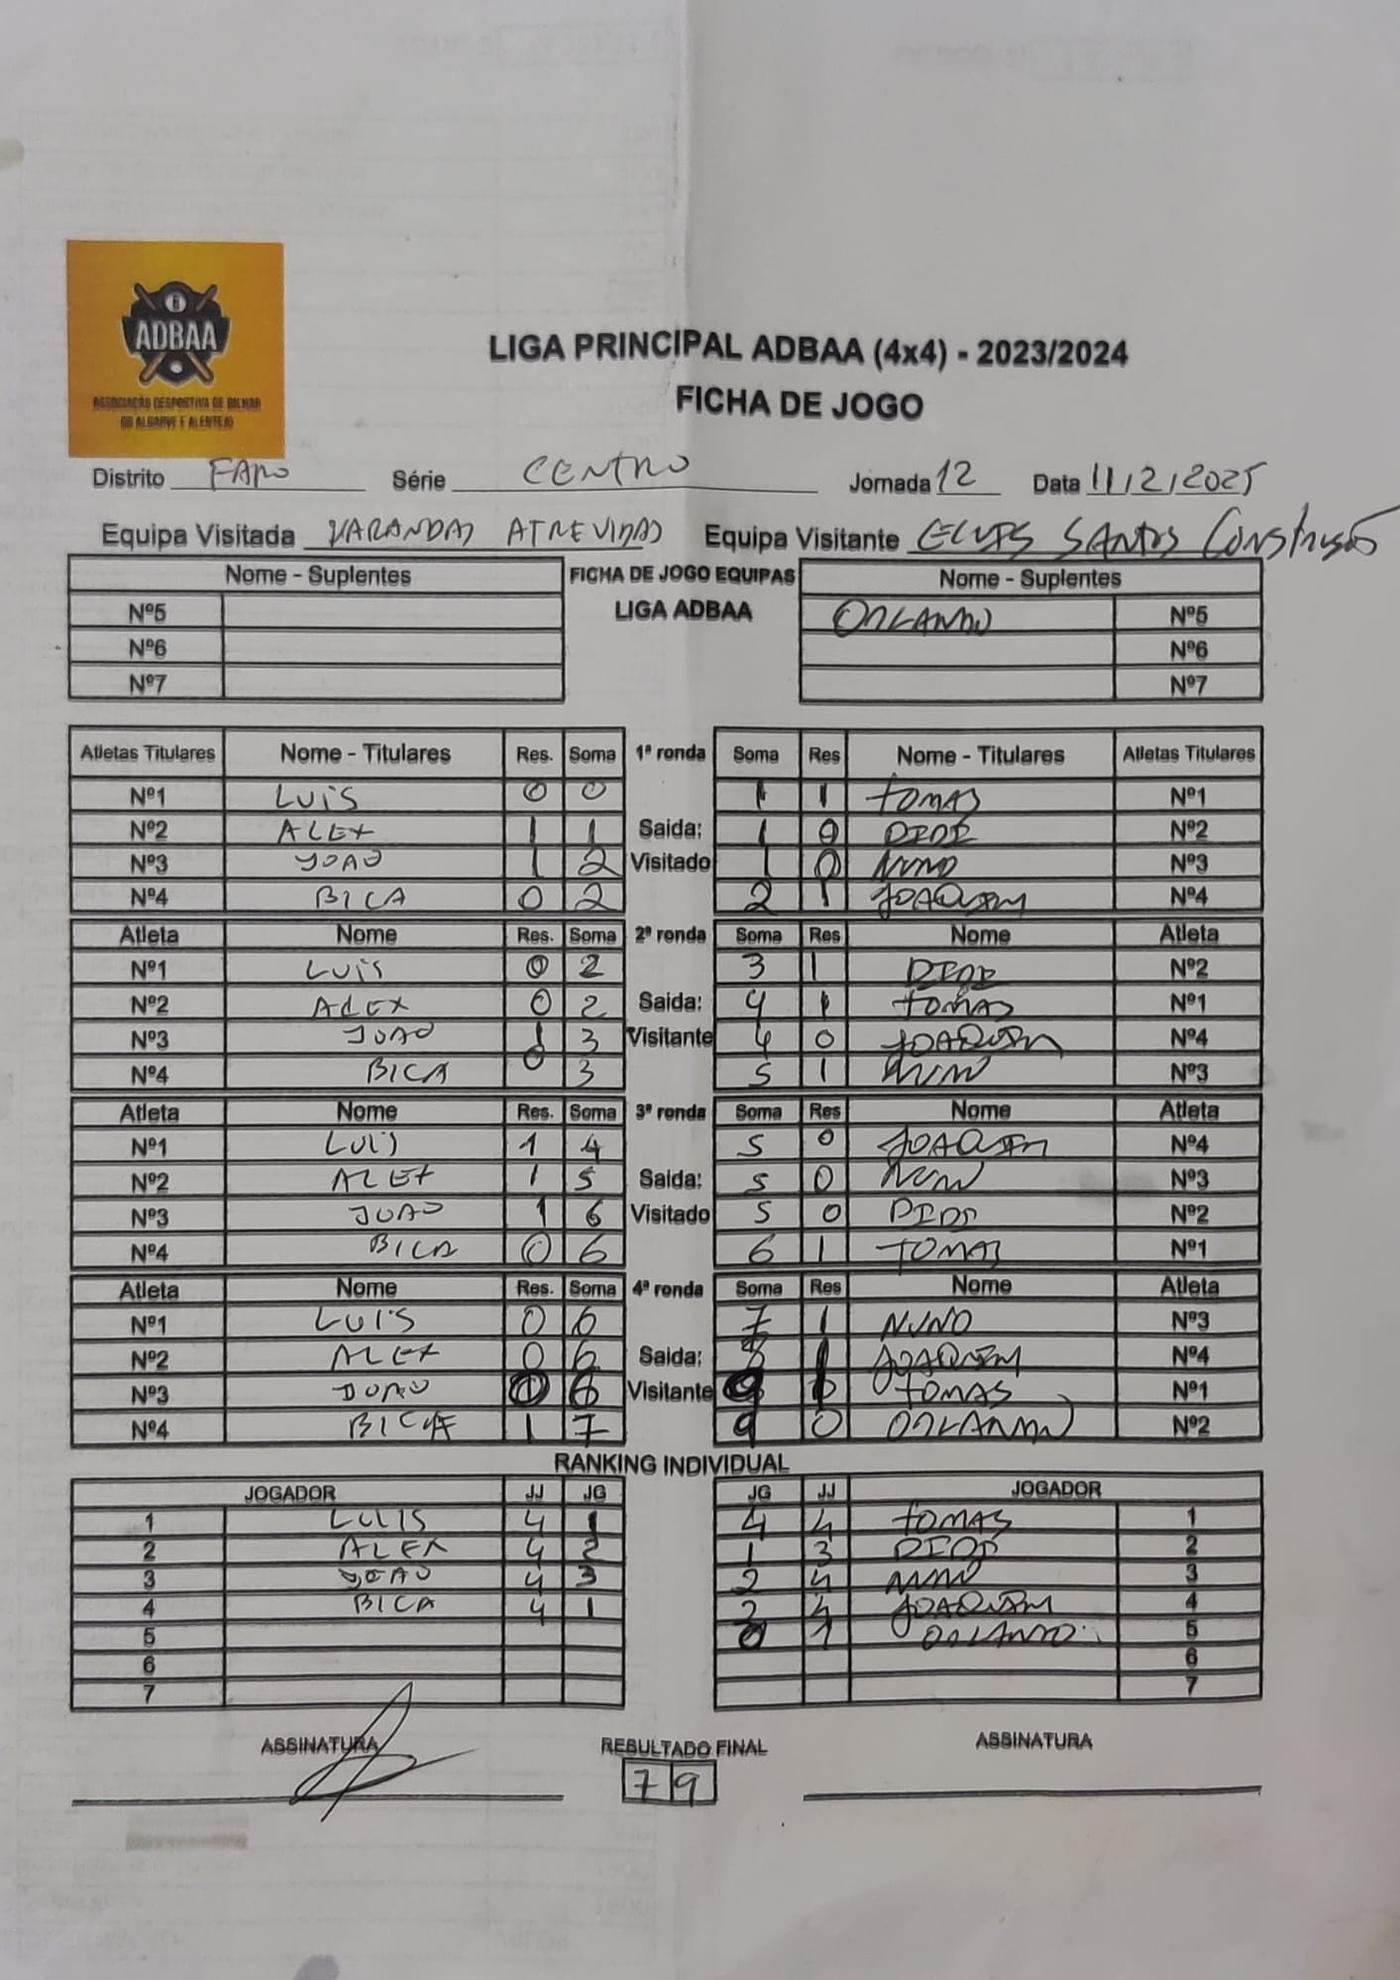 8
ADBAA
ASSOCIAÇÃO DESPORTIVA DE BILHAR
DO ALGARVE E ALENTEJO
LIGA PRINCIPAL ADBAA (4x4) - 2023/2024
FICHA DE JOGO
Distrito FARO Série CENTRO Jornada 12 Data 11/2/2025
Equipa Visitada VARANDAS ATREVIDAS Equipa Visitante ELVIS SANTOS Construção
Nome - Suplentes FICHA DE JOGO EQUIPAS Nome - Suplentes
Nº5 LIGA ADBAA ORLANDO Nº5
Nº6 Nº6
Nº7 Nº7
Atletas Titulares Nome - Titulares Res. Soma 1ª ronda Soma Res Nome - Titulares Atletas Titulares
Nº1 LUIS 0 0 1 1 TOMAS Nº1
Nº2 ALEX 1 1 Saida: 1 0 DIDI Nº2
Nº3 JOAO 1 2 Visitado 1 0 NUNO Nº3
Nº4 BICA 0 2 2 1 JOAQUIM Nº4
Atleta Nome Res. Soma 2ª ronda Soma Res Nome Atleta
Nº1 LUIS 0 2 3 1 DIDI Nº2
Nº2 ALEX 0 2 Saida: 4 1 TOMAS Nº1
Nº3 JOAO 1 3 Visitante 4 0 JOAQUIM Nº4
Nº4 BICA 0 3 5 1 NUNO Nº3
Atleta Nome Res. Soma 3ª ronda Soma Res Nome Atleta
Nº1 LUIS 1 4 5 0 JOAQUIM Nº4
Nº2 ALEX 1 5 Saida: 5 0 NUNO Nº3
Nº3 JOAO 1 6 Visitado 5 0 DIDI Nº2
Nº4 BICA 0 6 6 1 TOMAS Nº1
Atleta Nome Res. Soma 4ª ronda Soma Res Nome Atleta
Nº1 LUIS 0 6 7 1 NUNO Nº3
Nº2 ALEX 0 6 Saida: 8 1 JOAQUIM Nº4
Nº3 JOAO 0 6 Visitante 9 1 TOMAS Nº1
Nº4 BICA 1 7 9 0 ORLANDO Nº2
RANKING INDIVIDUAL
JOGADOR JJ JG JG JJ JOGADOR
1 LUIS 4 1 4 4 TOMAS 1
2 ALEX 4 2 1 3 DIDI 2
3 JOAO 4 3 2 4 NUNO 3
4 BICA 4 1 2 4 JOAQUIM 4
5 0 1 ORLANDO 5
6 6
7 7
ASSINATURA RESULTADO FINAL ASSINATURA
7 9